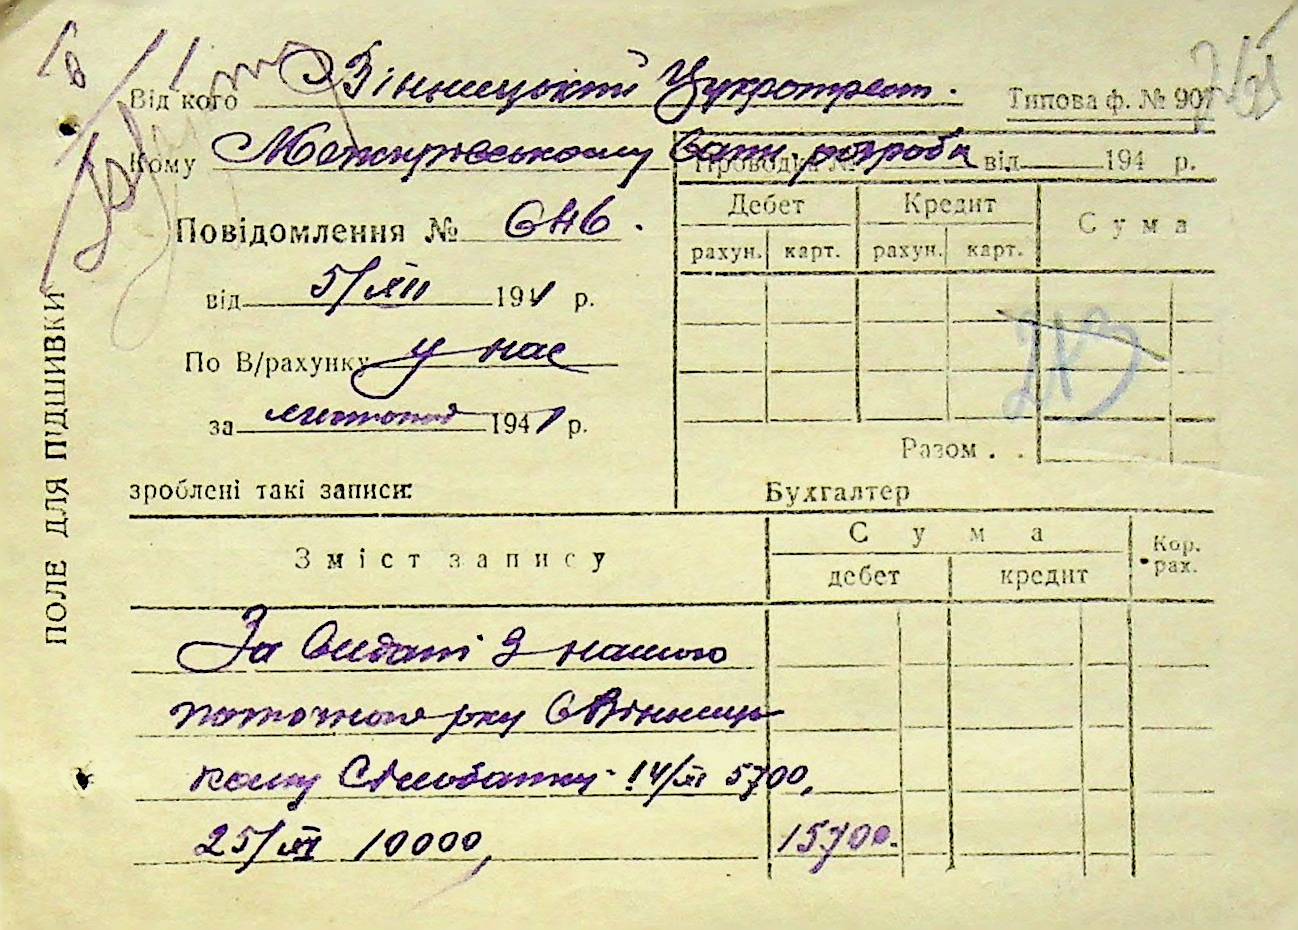 Від кого Вінницький Цукротрест.
Типова ф. № 90
Кому Межирівському вапн. розробк
Проводка № від 194 р.
Повідомлення № 646.
від 5/XII 1941 р.
По В/рахунку у нас
за листопад 1941 р.
зроблені такі записи:
Дебет Кредит Сума
рахун. карт. рахун. карт.
213
Разом . .
Бухгалтер
Зміст запису Сума Кор. рах.
дебет кредит
За видані з нашого
поточного р-ку в Вінниць-
кому Сільбанку 14/XI 5700,
25/XI 10000, 15700.
ПОЛЕ ДЛЯ ПІДШИВКИ